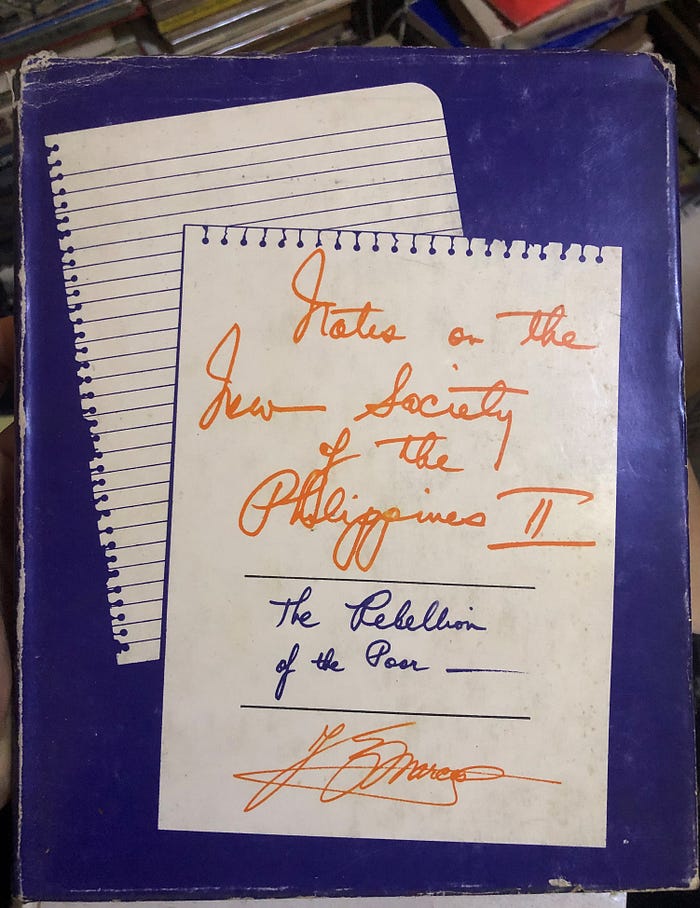 Notes on the
New Society
of the
Philippines II
The Rebellion
of the Poor
F E Marcos